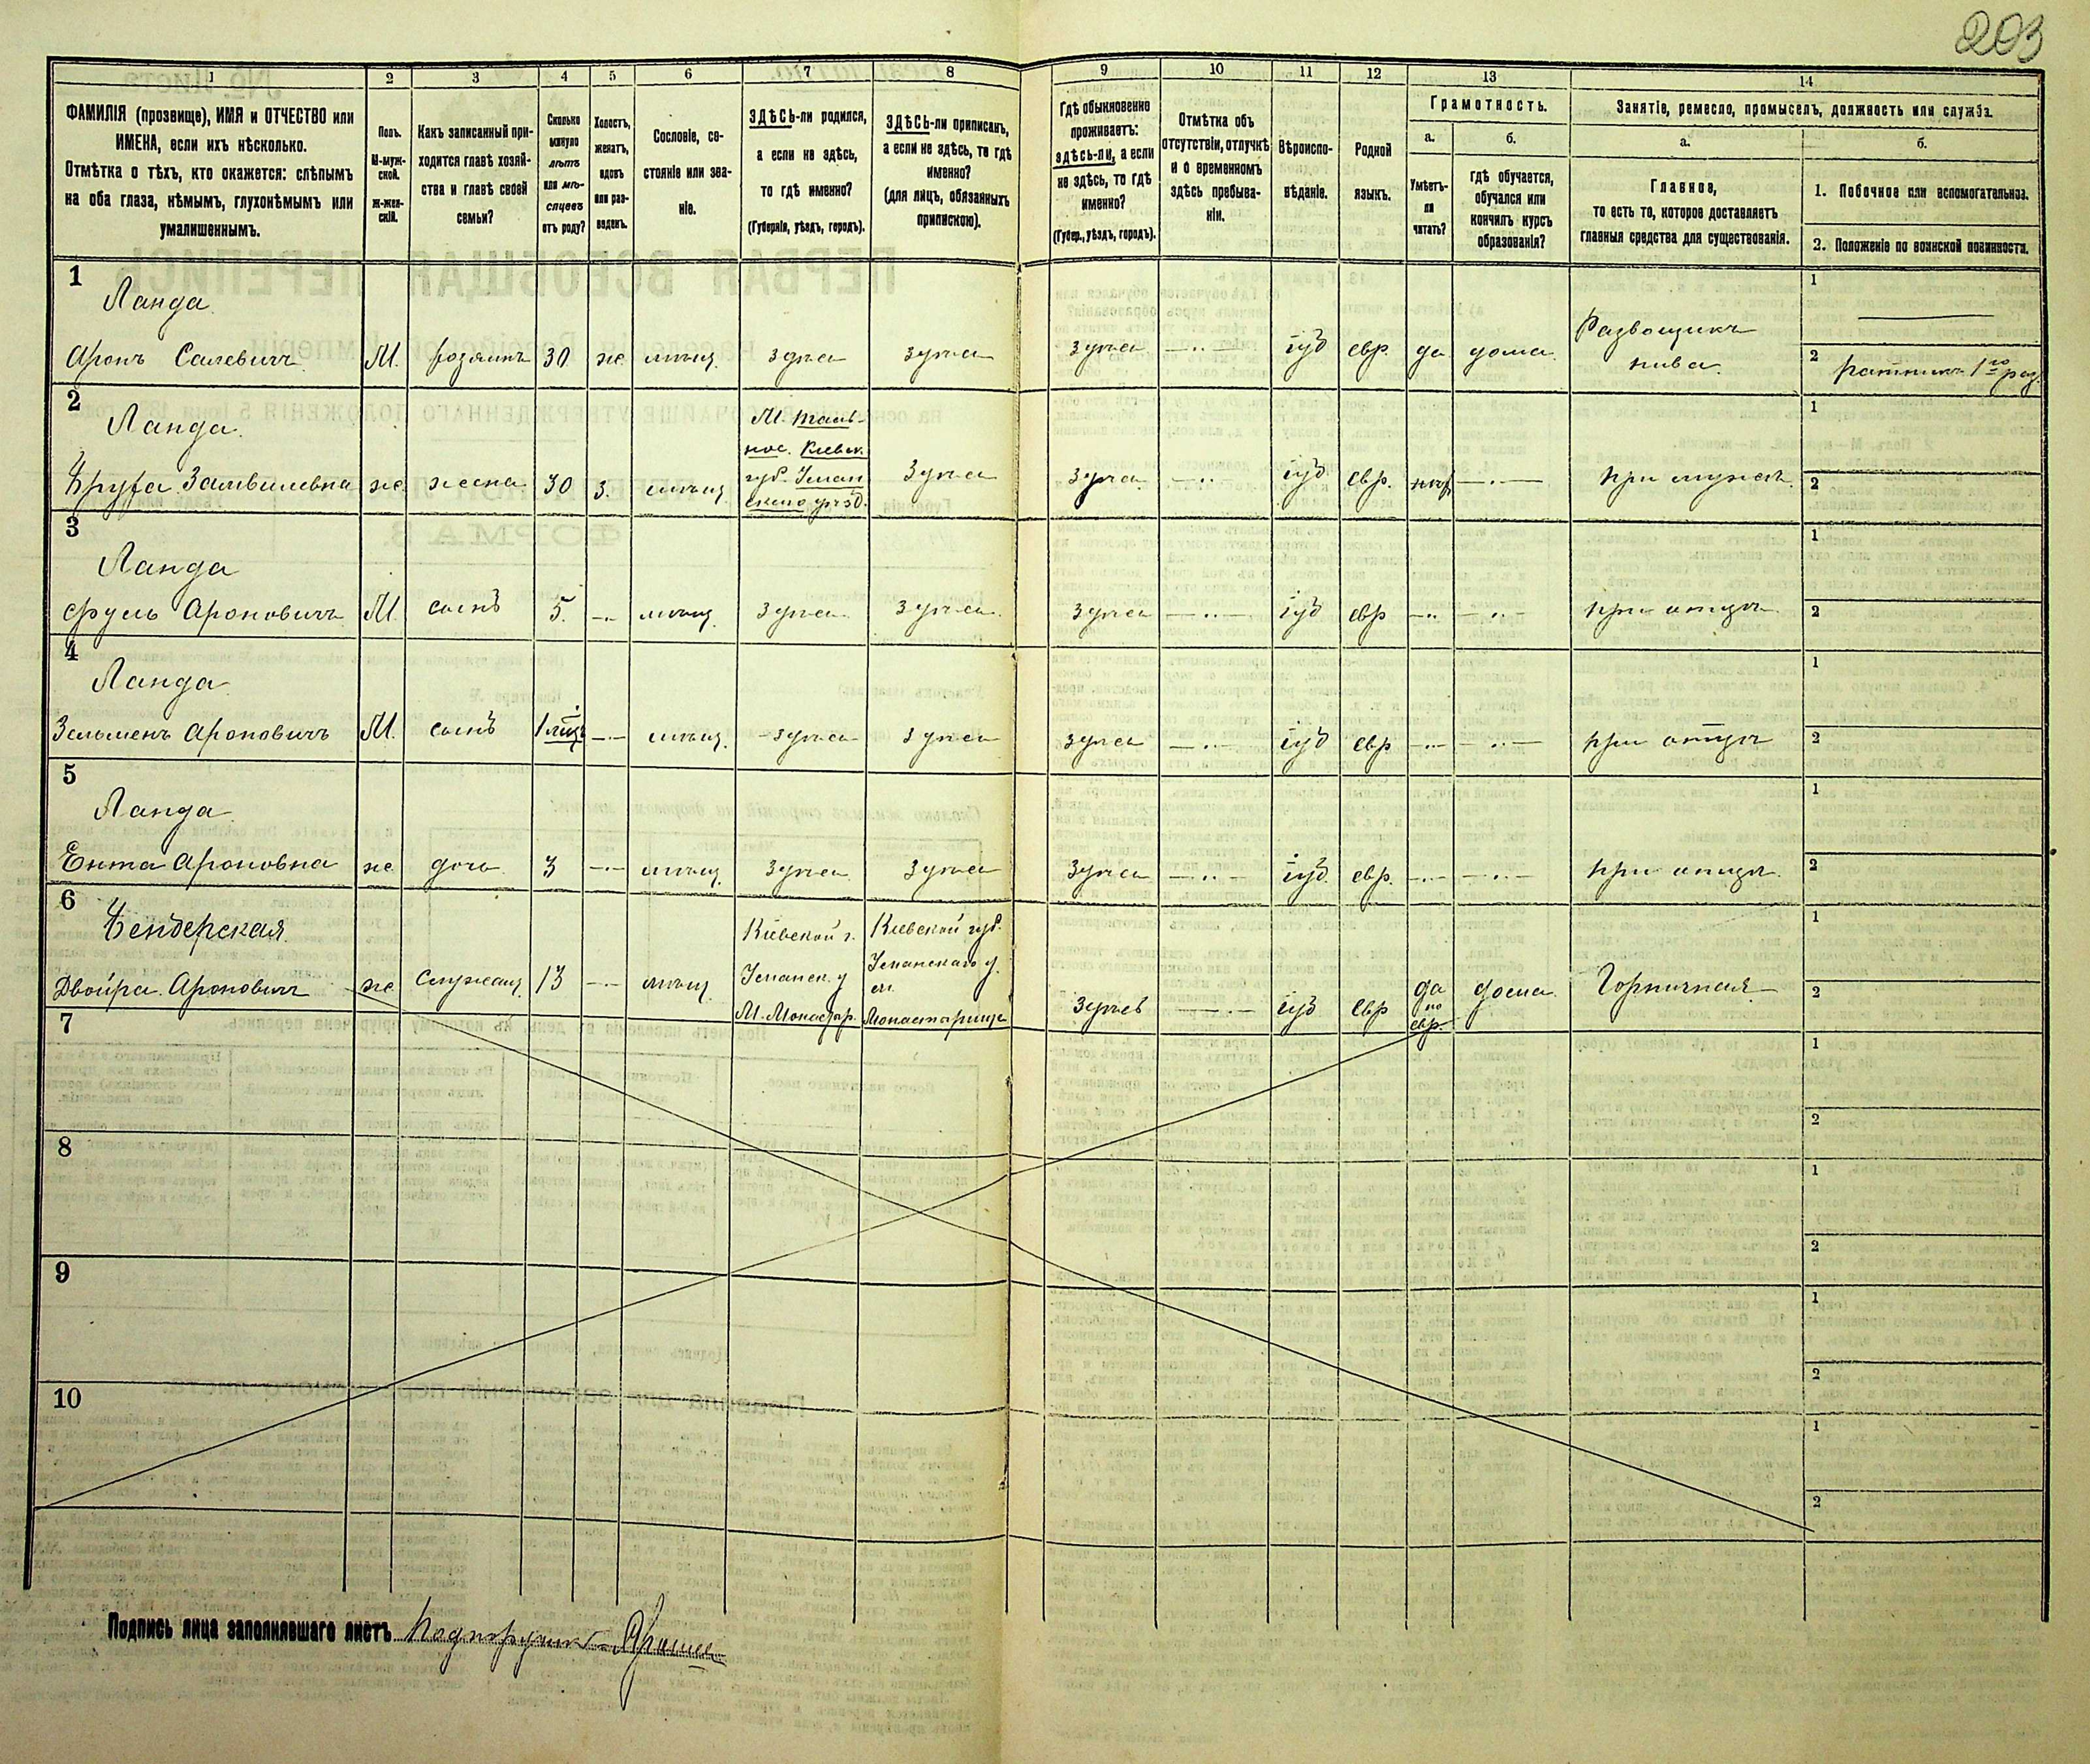 203
1 2 3 4 5 6 7 8 9 10 11 12 13 14
ФАМИЛІЯ (прозвище), ИМЯ и ОТЧЕСТВО или
ИМЕНА, если ихъ нѣсколько.
Отмѣтка о тѣхъ, кто окажется: слѣпымъ
на оба глаза, нѣмымъ, глухонѣмымъ или
умалишеннымъ.
Полъ.
М-муж-
ской.
ж-жен-
скій.
Какъ записанный при-
ходится главѣ хозяй-
ства и главѣ своей
семьи?
Сколько
минуло
лѣтъ
или мѣ-
сяцевъ
отъ роду?
Холостъ,
женатъ,
вдовъ
или раз-
веденъ.
Сословіе, со-
стояніе или зва-
ніе.
ЗДѢСЬ-ли родился,
а если не здѣсь,
то гдѣ именно?
(Губернія, уѣздъ, городъ).
ЗДѢСЬ-ли приписанъ,
а если не здѣсь, то гдѣ
именно?
(для лицъ, обязанныхъ
припискою).
Гдѣ обыкновенно
проживаетъ:
здѣсь-ли, а если
не здѣсь, то гдѣ
именно?
(Губер., уѣздъ, городъ).
Отмѣтка объ
отсутствіи, отлучкѣ
и о временномъ
здѣсь пребыва-
ніи.
Вѣроиспо-
вѣданіе.
Родной
языкъ.
Грамотность.
а.
Умѣетъ-
ли
читать?
б.
гдѣ обучается,
обучался или
кончилъ курсъ
образованія?
Занятіе, ремесло, промыселъ, должность или служба.
а.
Главное,
то есть то, которое доставляетъ
главныя средства для существованія.
б.
1. Побочное или вспомогательное.
2. Положеніе по воинской повинности.
1
Ланда
Аронъ М. хозяинъ 30 же мѣщ. здѣсь здѣсь здѣсь іуд евр. да дома
Развощикъ
пива
1
2 ратникъ 1го раз.
2
Ланда
же жена 30 З. мѣщ
М. Таль-
ное. Кіевск.
губ. Уман
скаго уѣзд.
здѣсь здѣсь іуд евр. при мужѣ
1
2
3
Ланда
Ароновичъ М. сынъ 5. мѣщ. здѣсь здѣсь здѣсь іуд евр при отцѣ
1
2
4
Ланда
Зельменъ Ароновичъ М. сынъ мѣщ. здѣсь здѣсь здѣсь іуд евр при отцѣ
1
2
5
Ланда
Ента Ароновна же дочь 3 мѣщ. здѣсь здѣсь здѣсь іуд. евр. при отцѣ
1
2
6
Двойра же 13 мѣщ
Кіевской г.
Уманск. у
М. Монастыр.
Кіевской губ.
Уманскаго у.
м.
Монастырище
здѣсь іуд евр
да
по
евр.
дома Горничная
1
2
7
1
2
8
1
2
9
1
2
10
1
2
Подпись лица заполнявшаго листъ